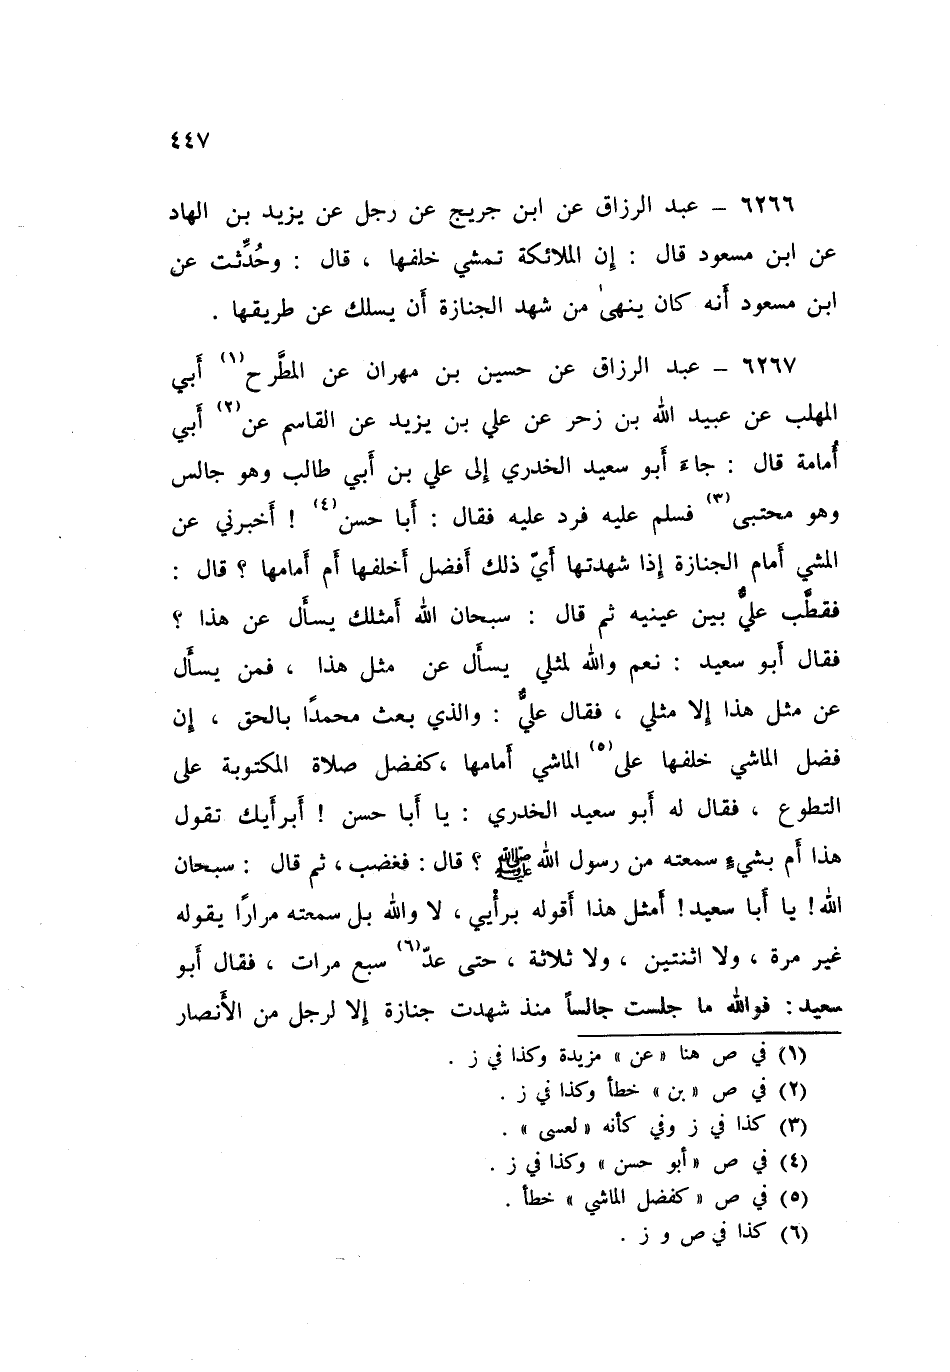 ٤٤٧
٦٢٦٦ – عبد الرزاق عن ابن جريج عن رجل عن يزيد بن الهاد
عن ابن مسعود قال : إن الملائكة تمشي خلفها ، قال : وحُدِّثت عن
ابن مسعود أَنه كان ينهىٰ من شهد الجنازة أَن يسلك عن طريقها .
٦٢٦٧ – عبد الرزاق عن حسين بن مهران عن المطَّرح(١) أَبي
المهلب عن عبيد الله بن زحر عن علي بن يزيد عن القاسم عن(٢) أَبي
أُمامة قال : جاءَ أَبو سعيد الخدري إلى علي بن أَبي طالب وهو جالس
وهو محتبى(٣) فسلم عليه فرد عليه فقال : أَبا حسن(٤) ! أَخبرني عن
المشي أَمام الجنازة إذا شهدتها أَيّ ذلك أَفضل أَخلفها أم أَمامها ؟ قال :
فقطَّب عليٌّ بين عينيه ثم قال : سبحان الله أَمثلك يسأَل عن هذا ؟
فقال أَبو سعيد : نعم والله لمثلي يسأَل عن مثل هذا ، فمن يسأَل
عن مثل هذا إلا مثلي ، فقال عليٌّ : والذي بعث محمدًا بالحق ، إن
فضل الماشي خلفها على(٥) الماشي أَمامها ،كفضل صلاة المكتوبة على
التطوع ، فقال له أَبو سعيد الخدري : يا أَبا حسن ! أَبرأَيك تقول
هذا أَم بشيءٍ سمعته من رسول الله ﷺ ؟ قال : فغضب ، ثم قال : سبحان
الله! يا أَبا سعيد! أَمثل هذا أَقوله برأْيي ، لا والله بل سمعته مرارًا يقوله
غير مرة ، ولا اثنتين ، ولا ثلاثة ، حتى عدّ(٦) سبع مرات ، فقال أَبو
سعيد : فوالله ما جلست جالساً منذ شهدت جنازة إلا لرجل من الأَنصار
(١) في ص هنا « عن » مزيدة وكذا في ز .
(٢) في ص « بن » خطأ وكذا في ز .
(٣) كذا في ز وفي كأنه « لعسى » .
(٤) في ص « أبو حسن » وكذا في ز .
(٥) في ص « كفضل الماشي » خطأ .
(٦) كذا في ص و ز .